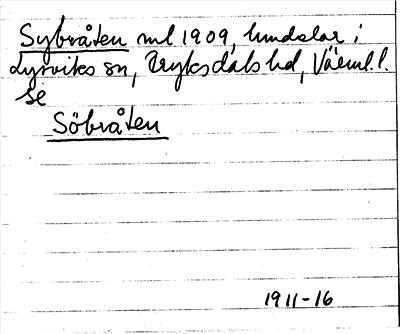 Sybråten ml 1909, lundelar i
Lysviks sn, Fryksdals hd, Värml. l.
Se
Söbråten
1911-16